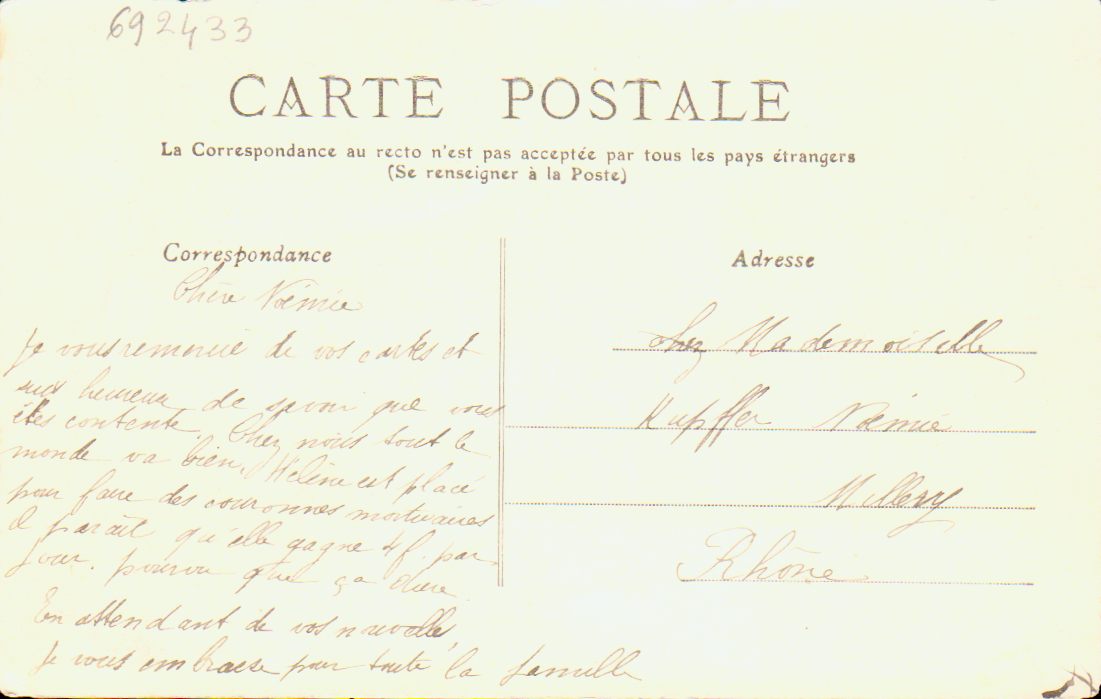 692433
CARTE POSTALE
La Correspondance au recto n'est pas acceptée par tous les pays étrangers
(Se renseigner à la Poste)
Correspondance
Chère Noémie
Je vous remercie de vos cartes et
suis heureux de savoir que vous
êtes contente. Chez nous tout le
monde va bien, Hélène est placé
pour faire des couronnes mortuaires
il parait qu'elle gagne 4f. par
jour. pourvu que ça dure.
En attendant de vos nouvelles,
Je vous embrasse pour toute la famille
Adresse
Chez Mademoiselle
Kupffer Noémie
Millery
Rhône